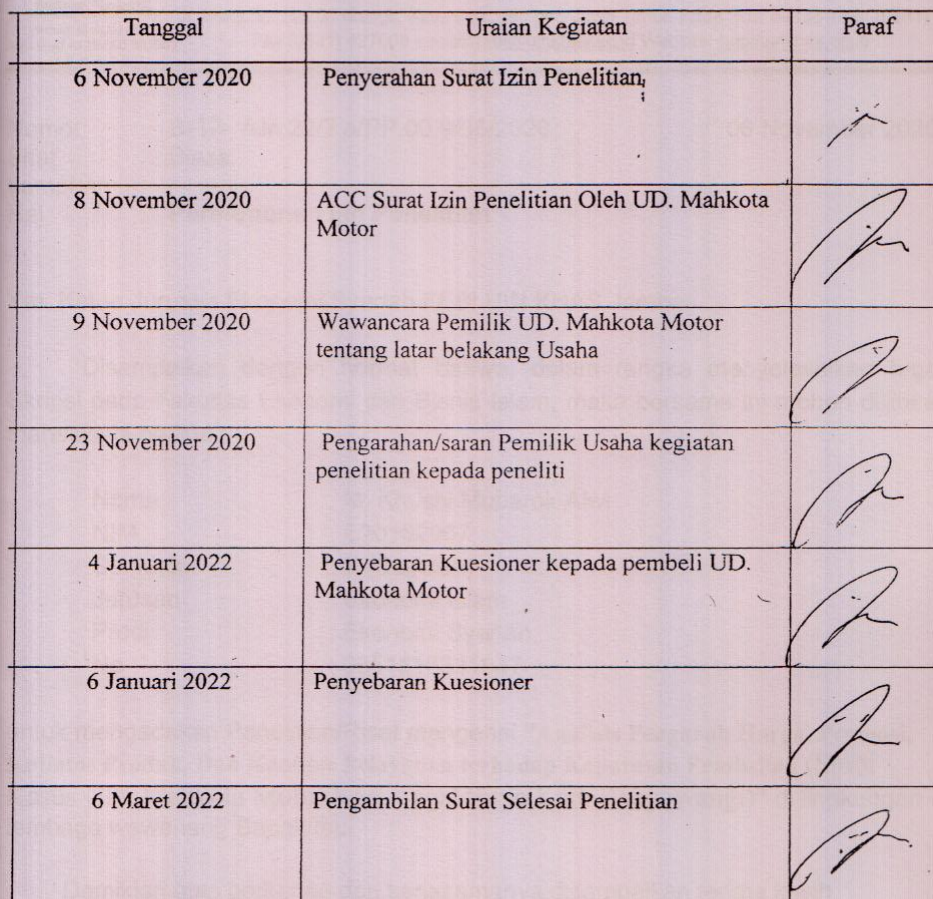 Tanggal Uraian Kegiatan Paraf
6 November 2020 Penyerahan Surat Izin Penelitian
8 November 2020 ACC Surat Izin Penelitian Oleh UD. Mahkota
Motor
9 November 2020 Wawancara Pemilik UD. Mahkota Motor
tentang latar belakang Usaha
23 November 2020 Pengarahan/saran Pemilik Usaha kegiatan
penelitian kepada peneliti
4 Januari 2022 Penyebaran Kuesioner kepada pembeli UD.
Mahkota Motor
6 Januari 2022 Penyebaran Kuesioner
6 Maret 2022 Pengambilan Surat Selesai Penelitian